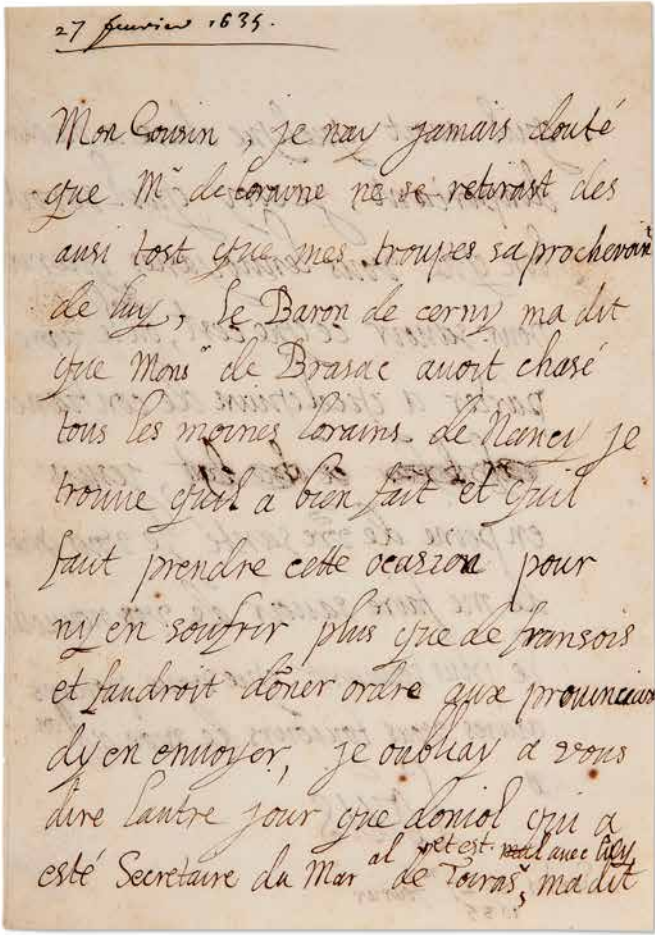 27 feurier 1635.
Mon Cousin, je nay jamais douté
que Mr de Loraine ne se retirast des
ausi tost que mes troupes saprochevoint
de luy, Le Baron de cerny ma dit
que Monsr de Brasac avoit chasé
tous les moines lorains de Nanci je
trouue quil a bien fait et quil
faut prendre cette ocazion pour
ny en soufrir plus que de fransois
et faudroit doner ordre aux prouinciaux
dy en enuoyer, je oubliay a vous
dire lautre jour que doniol qui a
et est mal avec luy
esté Secretaire du Maral de Toiras, ma dit